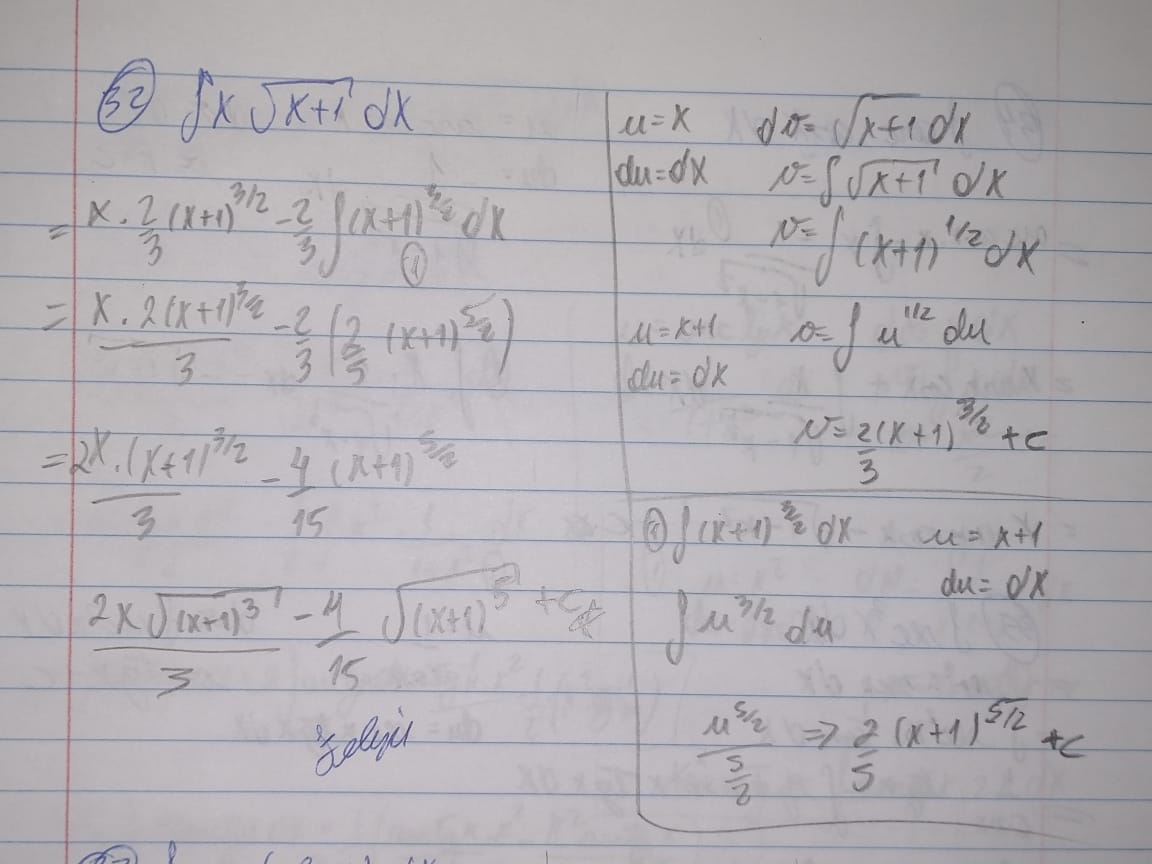 32 ∫x √(x+1) dx
= x · 2/3 (x+1)^3/2 - 2/3 ∫(x+1)^3/2 dx
①
= x · 2(x+1)^3/2 / 3 - 2/3 (2/5 (x+1)^5/2)
= 2x · (x+1)^3/2 / 3 - 4/15 (x+1)^5/2
2x√(x+1)^3 / 3 - 4/15 √(x+1)^5 + C
u = x dv = √(x+1) dx
du = dx v = ∫√(x+1) dx
v = ∫(x+1)^1/2 dx
u = x+1 v = ∫u^1/2 du
du = dx
v = 2/3 (x+1)^3/2 + c
① ∫(x+1)^3/2 dx u = x+1
du = dx
∫u^3/2 du
u^5/2 / 5/2 => 2/5 (x+1)^5/2 + c